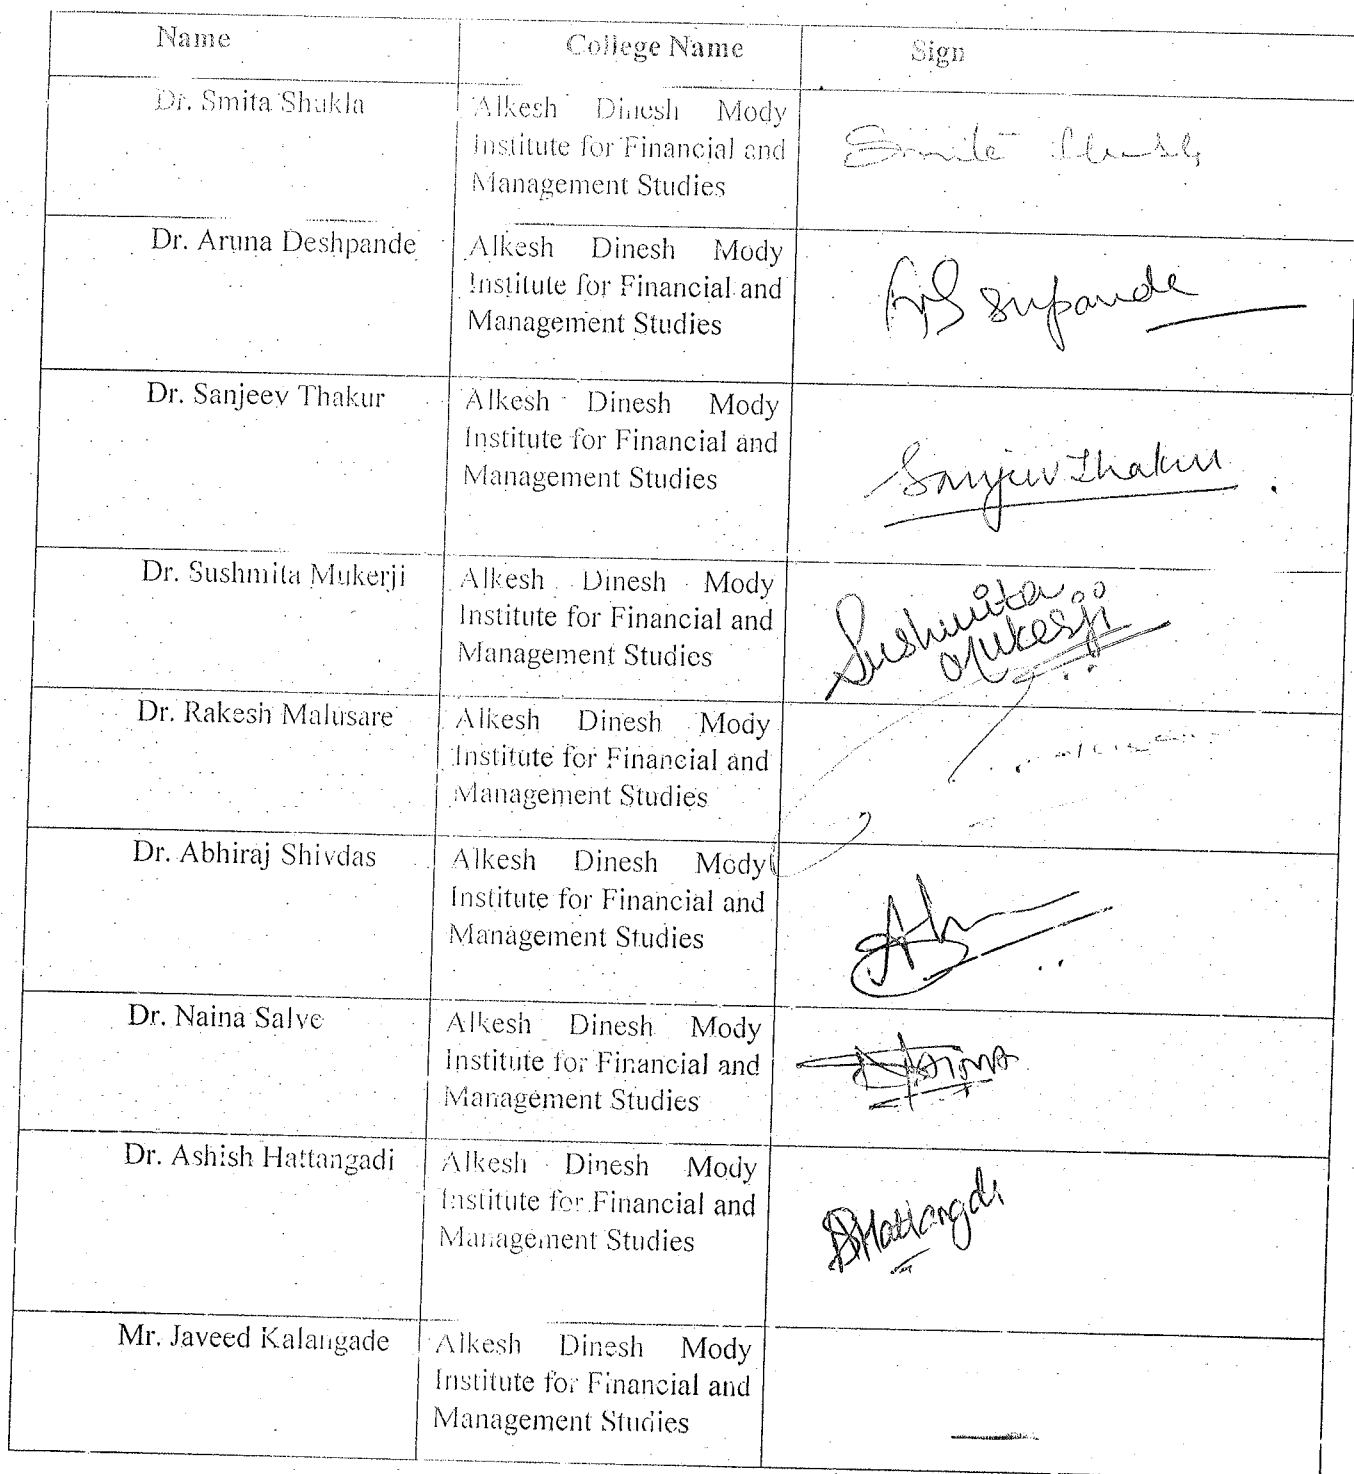 Name College Name Sign
Dr. Smita Shukla Alkesh Dinesh Mody
Institute for Financial and
Management Studies
Dr. Aruna Deshpande Alkesh Dinesh Mody
Institute for Financial and
Management Studies
Dr. Sanjeev Thakur Alkesh Dinesh Mody
Institute for Financial and
Management Studies
Sanjeev Thakur
Dr. Sushmita Mukerji Alkesh Dinesh Mody
Institute for Financial and
Management Studies
Sushmita
Mukerji
Dr. Rakesh Malusare Alkesh Dinesh Mody
Institute for Financial and
Management Studies
Dr. Abhiraj Shivdas Alkesh Dinesh Mody
Institute for Financial and
Management Studies
Dr. Naina Salve Alkesh Dinesh Mody
Institute for Financial and
Management Studies
Naina
Dr. Ashish Hattangadi Alkesh Dinesh Mody
Institute for Financial and
Management Studies
Mr. Javeed Kalangade Alkesh Dinesh Mody
Institute for Financial and
Management Studies